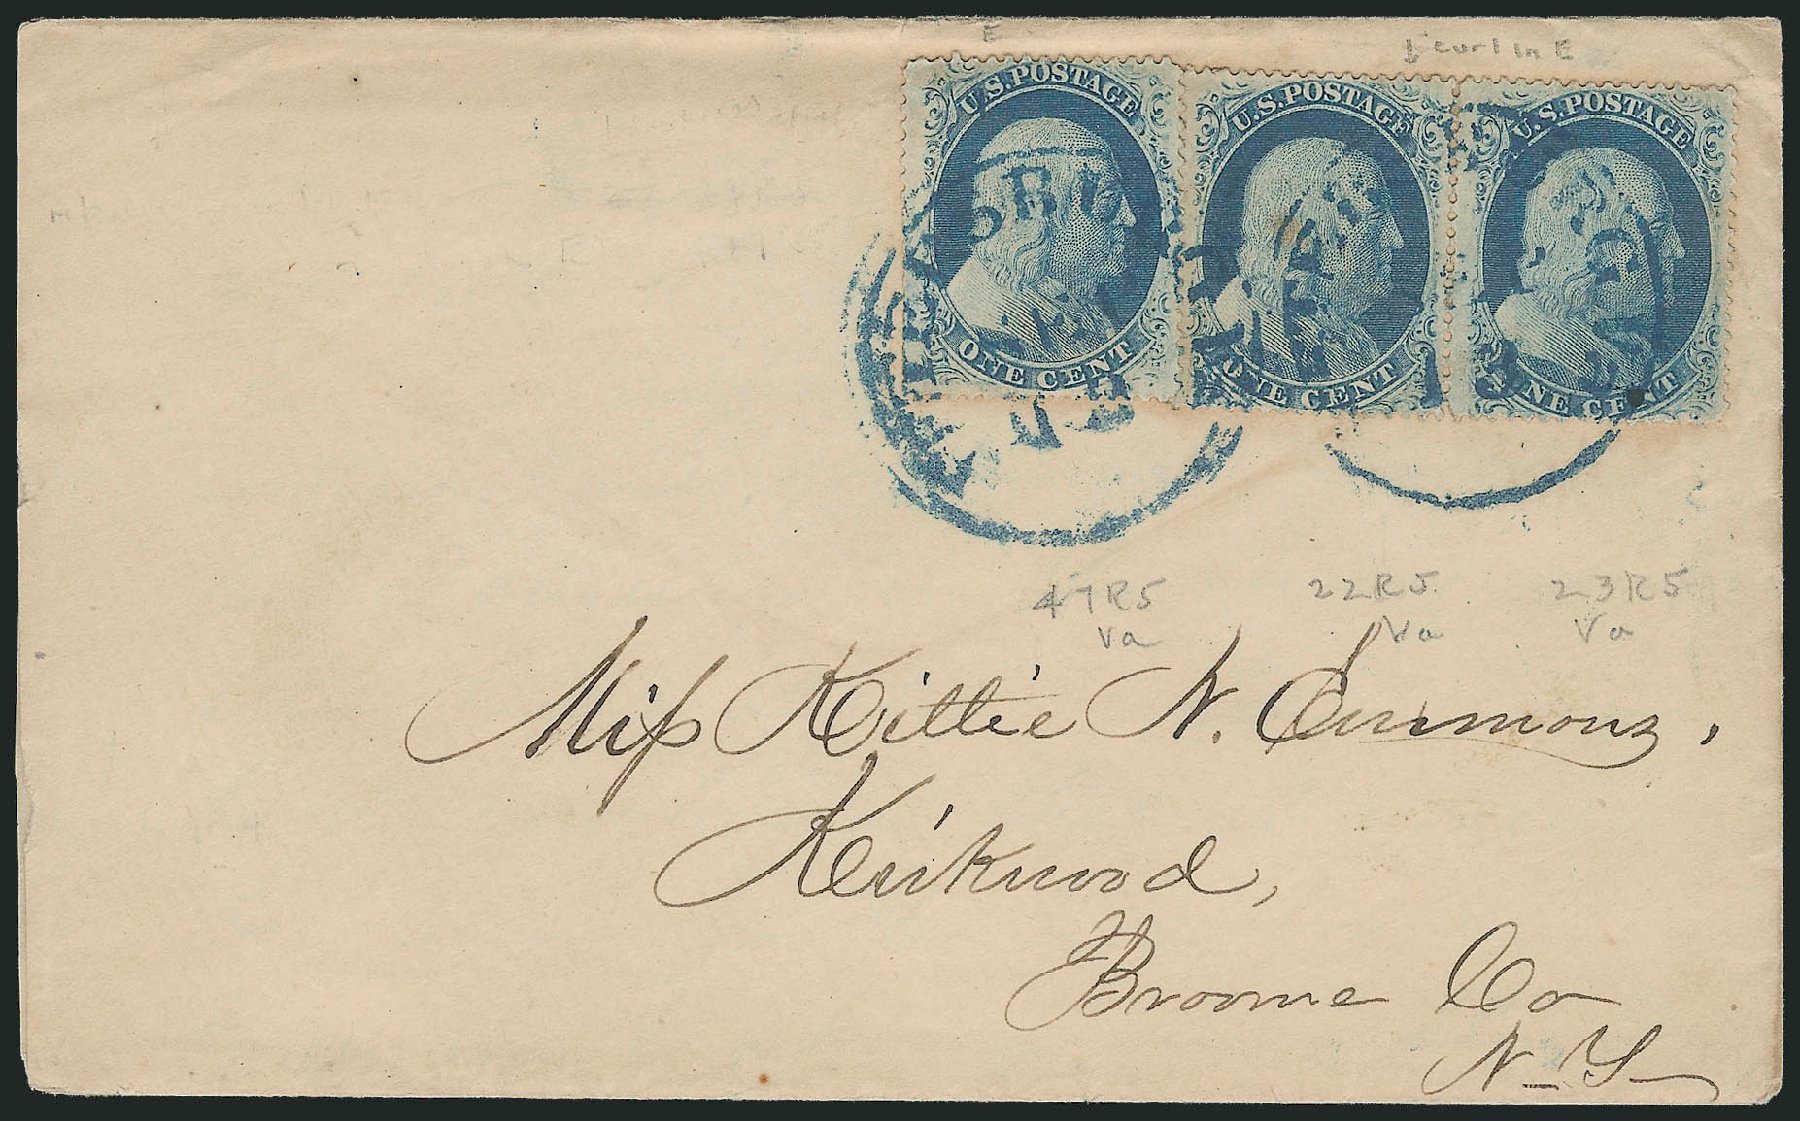 E
curl in E
U.S. POSTAGE U.S. POSTAGE U.S. POSTAGE
ONE CENT ONE CENT ONE CENT
47R5 22R5 23R5
Va Va Va
Miſs Kittie N. Emmons,
Kirkwood,
Broome Co
N-Y-